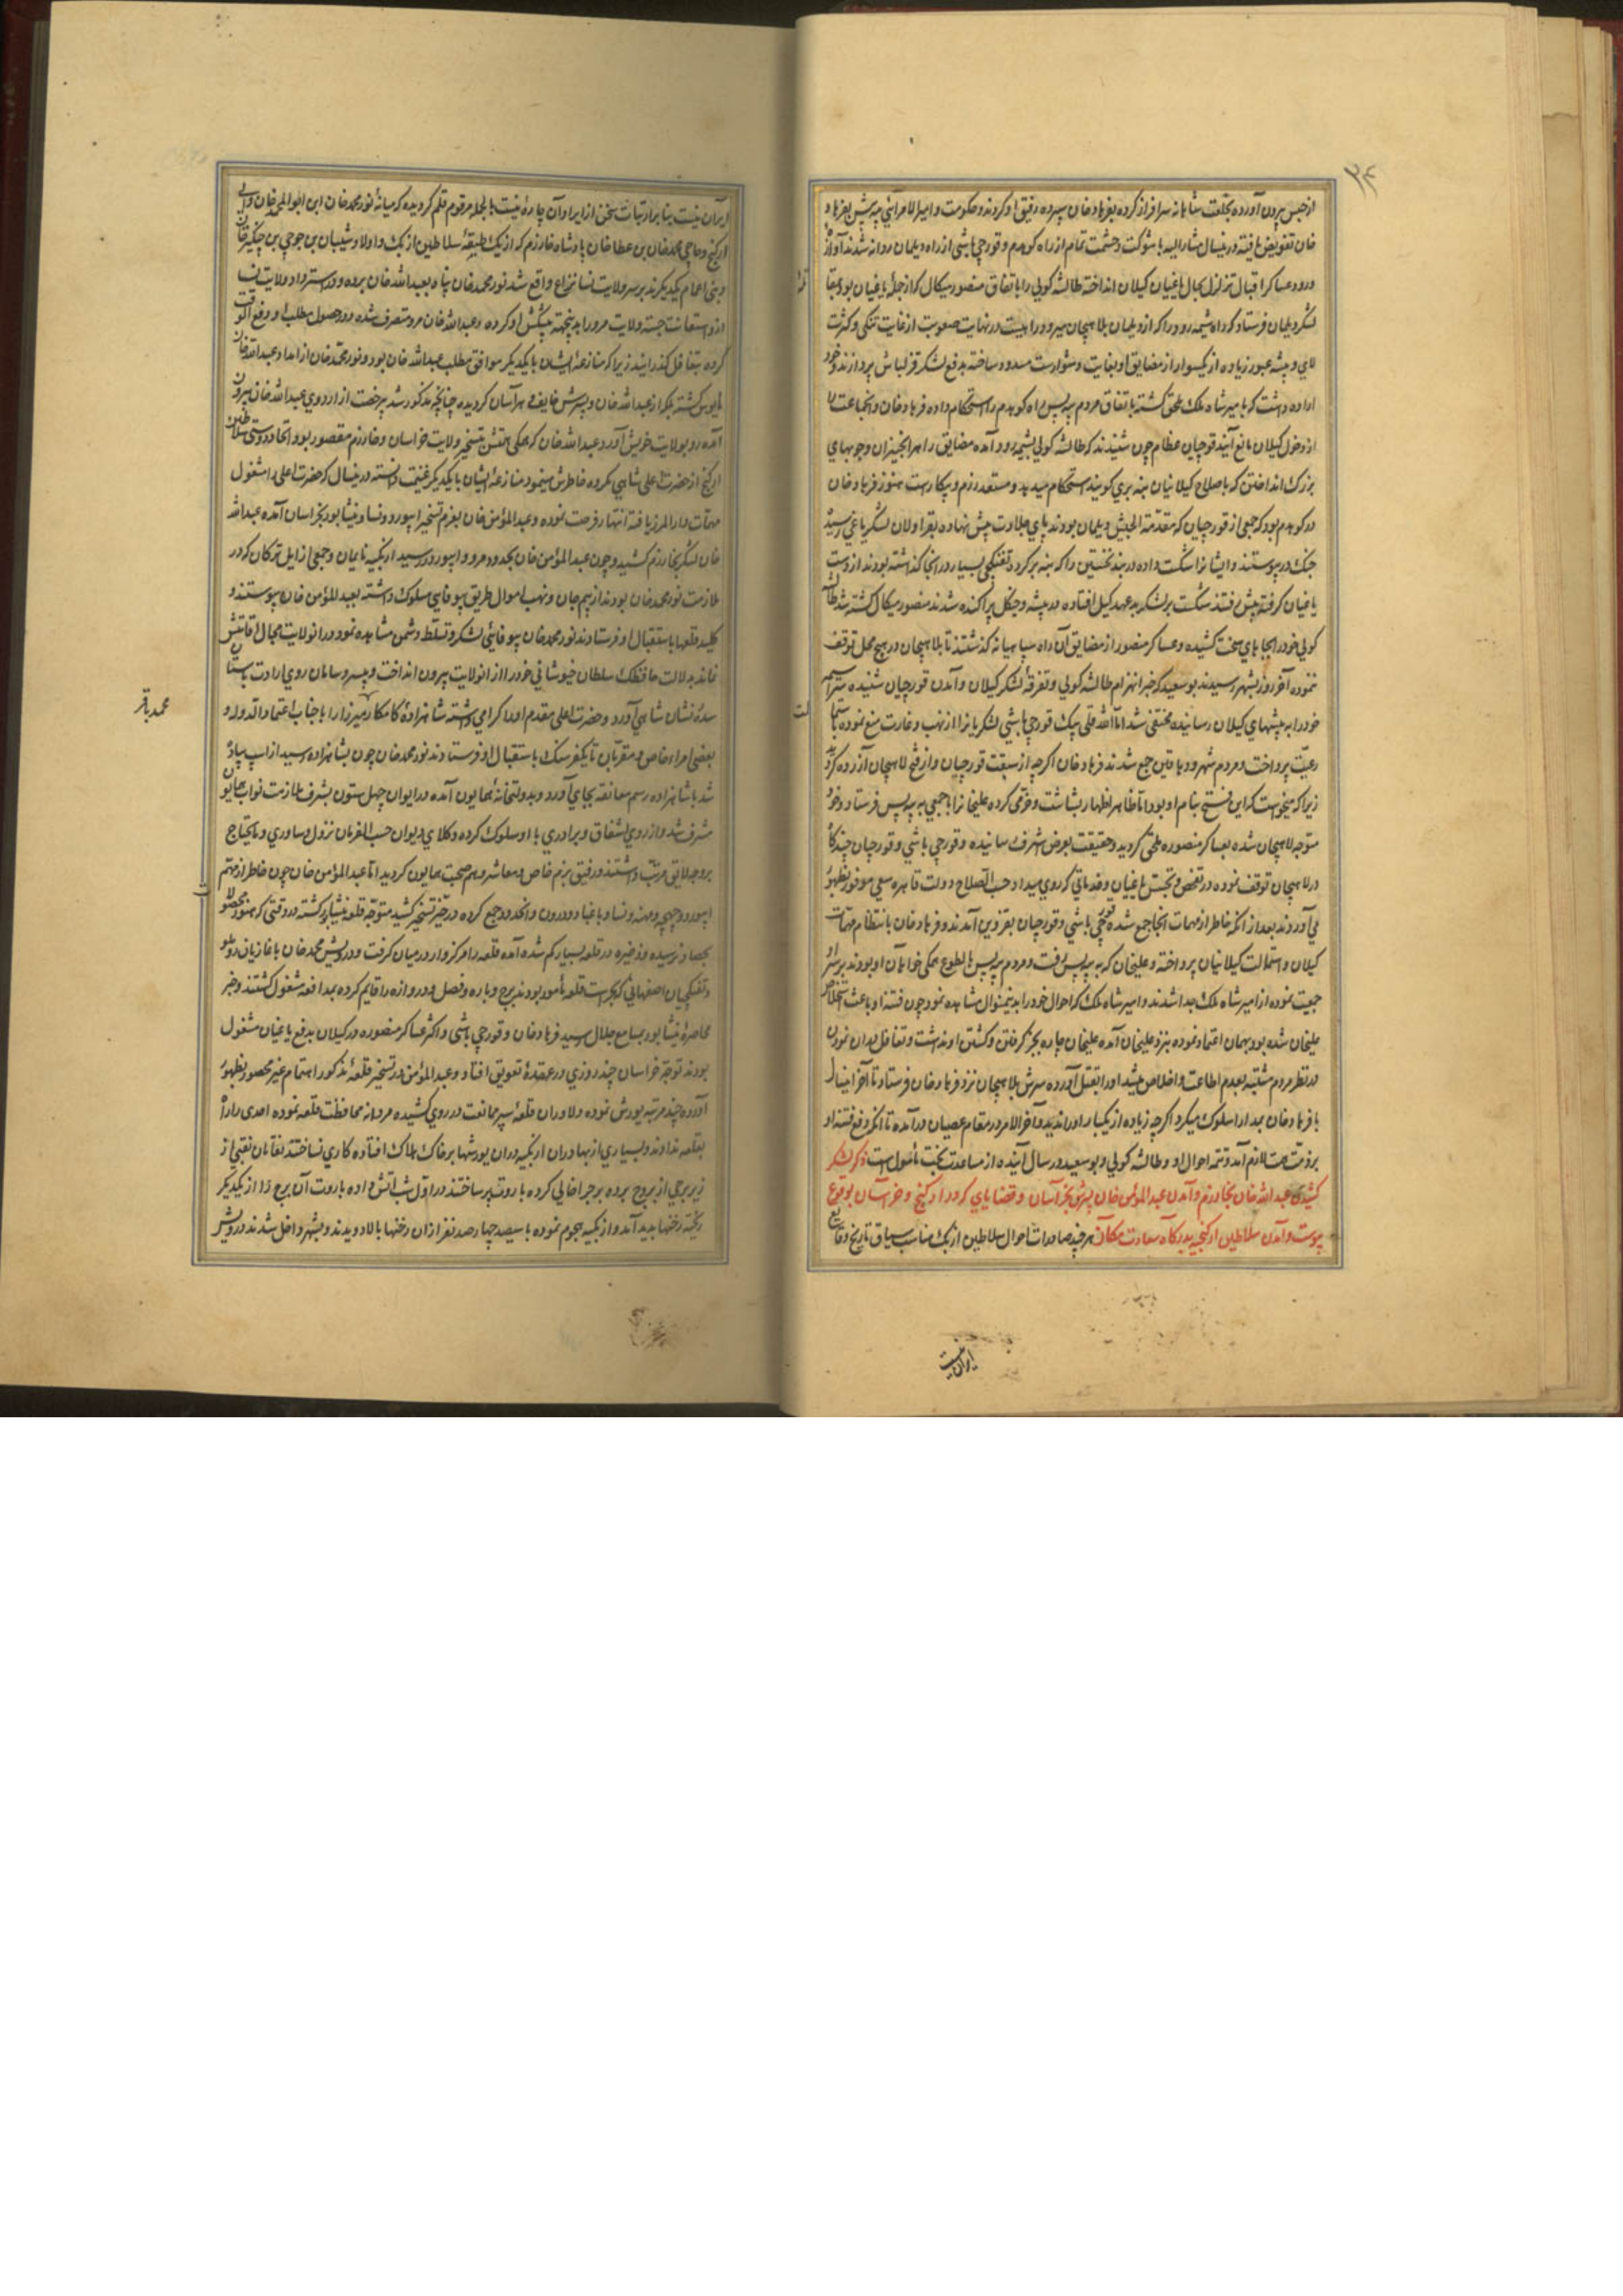 ۲۴
از حبس بیرون آورده بخلعت شاهانه سرافراز کرده بفرهاد خان سپرده رفیق او کردند و حکومت و امیرالامرائی
خان تفویض یافته درینسال مشارالیه با شوکت و حشمت تمام از راه کوهدم و قورچی باشی از راه دیلمان روانه شدند آوازهٔ
ورود عساکر اقبال تزلزل بحال یاغیان کیلان انداخته طالشه کولی را باتفاق منصور میکال که از جمله یاغیان بود
لشکر دیلمان فرستاد که راه شیمه رود را که از دیلمان بلاهیجان میرود در نهایت صعوبت از غایت تنکی و کثرت
لای و بیشه عبور زیاده از یکسوار از مضایق او بغایت دشوارست مسدود ساخته بدفع لشکر قزلباش پردازند و خود
اراده داشت که بامیر شاه ملک ملحق کشته باتفاق مردم راه کوهدم را استحکام داده فرهاد خان و انجماعت را
از دخول کیلان مانع آیند قورچیان عظام چون شنیدند که طالشه کولی بشیمه رود آمده مضایق را و چوبهای
بزرک انداختن که باصلاح کیلانیان بنه بری کویند استحکام میدهد و مستعد رزم و پیکارست هنوز فرهاد خان
در کوهدم بود که جمعی از قورچیان که مقدمة الجیش دیلمان بودند پای جلادت پیش نهاده بقراولان لشکر یاغی رسیده
جنک در پیوستند و ایشانرا شکست داده در بند نخستین را که بنه بر کرده تفنکچی بسیار در انجا کذاشته بودند از دست
یاغیان کرفته پیش رفتند شکست بر لشکر بدعهد کیل افتاده در بیشه و جنکل پراکنده شدند منصور میکال کشته شد طالشه
کولی خود را بجاهای سخت کشیده و عساکر منصور از مضایق آن راه سپاهیانه کذشتند تا بلاهیجان در هیچ محل توقف
ننموده آخر روز بشهر رسیدند بوسعید که خبر انهزام طالشه کولی و تفرقهٔ لشکر کیلان و آمدن قورچیان شنیده
خود را به بیشهای کیلان رسانیده مختفی شد اما الله قلی بیک قورچی باشی لشکریانرا از نهب و غارت منع نموده
رعیت پرداخت و مردم شهر و دهاقین جمع شدند فرهاد خان اکرچه از سبقت قورچیان و از فتح لاهیجان آزرده کردید
زیرا که میخواست که این فتح بنام او بود اما ظاهر اظهار بشاشت و خرمی کرده علیخانرا با جمعی به بیه پس فرستاد و خود
متوجه لاهیجان شده بعساکر منصوره ملحق کردید و حقیقت بعرض اشرف رسانیده و قورچی باشی و قورچیان
در لاهیجان توقف نموده در تفحص و تجسس یاغیان و خدماتی که روی میداد حسب الصلاح دولت قاهره سعی موفور بظهور
می آوردند بعد از انکه خاطر از مهمات انجا جمع شده قورچی باشی و قورچیان بقزوین آمدند و فرهاد خان بانتظام مهمات
کیلان و استمالت کیلانیان پرداخته و علیخان که به بیه پس رفت و مردم بیه پس بالطوع همکی خواهان او بودند بر سر او
جمعیت نموده از امیر شاه ملک جدا شدند و امیر شاه ملک که احوال خود را بدینمنوال مشاهده نمود چون فتنه او باعث
علیخان شده بود بهمان اعتماد نموده بنزد علیخان آمده علیخان چاره بجز کرفتن و کشتن او نداشت و تغافل دران نمودن
در نظر مردم مشتبه بعدم اطاعت و اخلاص میشد او را بقتل آورده سرش بلاهیجان نزد فرهاد خان فرستاد تا آخر اینسال
با فرهاد خان بمدارا سلوک میکرد اکرچه زیاده از یکبار او را ندید و آخر الامر در مقام عصیان درآمده تا انکه دفع فتنه او
بر ذمت همت لازم آمد و تتمه احوال او و طالشه کولی و بوسعید در سال آینده از مساعدت بخت مأمولست ذکر لشکر
کشیدن عبدالله خان بخوارزم و آمدن عبدالمؤمن خان پسرش بخراسان و قضایای که در ارکنج و خراسان بوقوع
پیوست و آمدن سلاطین ارکنجیه بدرکاه سعادت مکان هرچند صادرات احوال سلاطین ازبک مناسب سیاق تاریخ وقایع
ایران نیست
ایران نیست بنا بر ارتباط سخن از ایراد آن چاره نیست بالجمله مرقوم قلم کردیده که میانهٔ نور محمد خان ابن ابوالمحمد خان والی
ارکنج و حاجی محمد خان بن عطا خان پادشاه خوارزم که از یک طبقهٔ سلاطین ازبک و اولاد شیبان بن جوجی بن چنکیز خان
و بنی اعمام یکدیکرند بر سر ولایت نسا نزاع واقع شد نور محمد خان پناه بعبدالله خان برده و در استرداد ولایت نسا
ازو استعانت جسته ولایت مرو را پیشکش او کرده و عبدالله خان مرو متصرف شده در حصول مطلب او
کرده بتغافل کذرانید زیرا که منازعهٔ ایشان با یکدیکر موافق مطلب عبدالله خان بود و نور محمد خان از امداد عبدالله خان
مایوس کشته بلکه از عبدالله خان و پسرش خایف و هراسان کردیده چنانچه مذکور شد بیرخصت از اردوی عبدالله خان بیرون
آمده رو بولایت خویش آورد و عبدالله خان که همکی همتش بتسخیر ولایت خراسان و خوارزم مقصور بود و اتحاد و دوستی سلاطین
ارکنج از حضرت اعلی شاهی مکروه خاطرش مینمود منازعهٔ ایشان با یکدیکر غنیمت دانسته درینسال که حضرت اعلی را مشغول
مهمات دارالمرز یافته انتهاز فرصت نموده و عبدالمؤمن خان بعزم تسخیر ابیورد و نسا و نیشابور بخراسان آمده عبدالله
خان لشکر بخوارزم کشید و چون عبدالمؤمن خان بحدود مرو و ابیورد رسید ازبکیه نایمان و جمعی از ایل ترکان که در
ملازمت نور محمد خان بودند از بیم جان و نهب اموال طریق بیوفایی مسلوک داشته بعبدالمؤمن خان پیوستند و
کلید قلعها باستقبال او فرستادند نور محمد خان بیوفائی لشکر و تسلط دشمن مشاهده نمود در انولایت مجال اقامتش
نمانده بدلالت حافظک سلطان خبوشانی خود را از انولایت بیرون انداخت و بیسر و سامان روی ارادت باستان
سدره نشان شاهی آورد و حضرت اعلی مقدم او را کرامی داشته شاهزادهٔ کامکار میرزا را با جناب اعتمادالدوله و
بعضی امراء خاص و مقربان تا یکفرسنک باستقبال او فرستادند نور محمد خان چون بشاهزاده رسید از اسب پیاده
شد با شاهزاده رسم معانقه بجای آورد و بدولتخانهٔ همایون آمده در ایوان چهل ستون بشرف ملازمت نواب همایون
مشرف شد و از روی اشفاق و برادری با او سلوک کرده وکلای دیوان حسب الفرمان نزول و ساوری و مایحتاج
بر وجه لایق مرتب داشتند و رفیق بزم خاص و معاشر و هم صحبت همایون کردید اما عبدالمؤمن خان چون خاطر از مهم
ابیورد و چهچهه و مهنه و نسا و باغباد و درون و انحدود جمع کرده در حیز تسخیر کشید متوجه قلعه نیشابور کشته در وقتی که هنوز محصول
بحصاد نرسیده و ذخیره در قلعه بسیار کم شده آمده قلعه را مرکزوار در میان کرفت و درویش محمد خان با غازیان روملو
و تفنکچیان اصفهانی که بحراست قلعه مأمور بودند برج و باره و فصل و دروازه را قایم کرده بمدافعه مشغول کشتند و خبر
محاصرهٔ نیشابور بمسامع جلال رسید فرهاد خان و قورچی باشی و اکثر عساکر منصوره در کیلان بدفع یاغیان مشغول
بودند توجه خراسان چند روزی در عقدهٔ تعویق افتاد و عبدالمؤمن در تسخیر قلعهٔ مذکور اهتمام غیر محصور بظهور
آورده چند مرتبه یورش نموده دلاوران قلعه سپر ممانعت در روی کشیده مردانه محافظت قلعه نموده احدی را راه
بقلعه ندادند و بسیاری از بهادران ازبکیه دران یورشها بر خاک هلاک افتاده کاری نساختند نقابان نقبی از
زیر برجی از بروج برده برجرا خالی کرده باروت پر ساختند در اول شب آتش داده باروت آن برج را از یکدیکر
ریخته رخنها پدید آمد و ازبکیه هجوم نموده با سیصد چهارصد نفر ازان رخنها بالا دویدند و بشهر داخل شدند درویش
محمد باقر